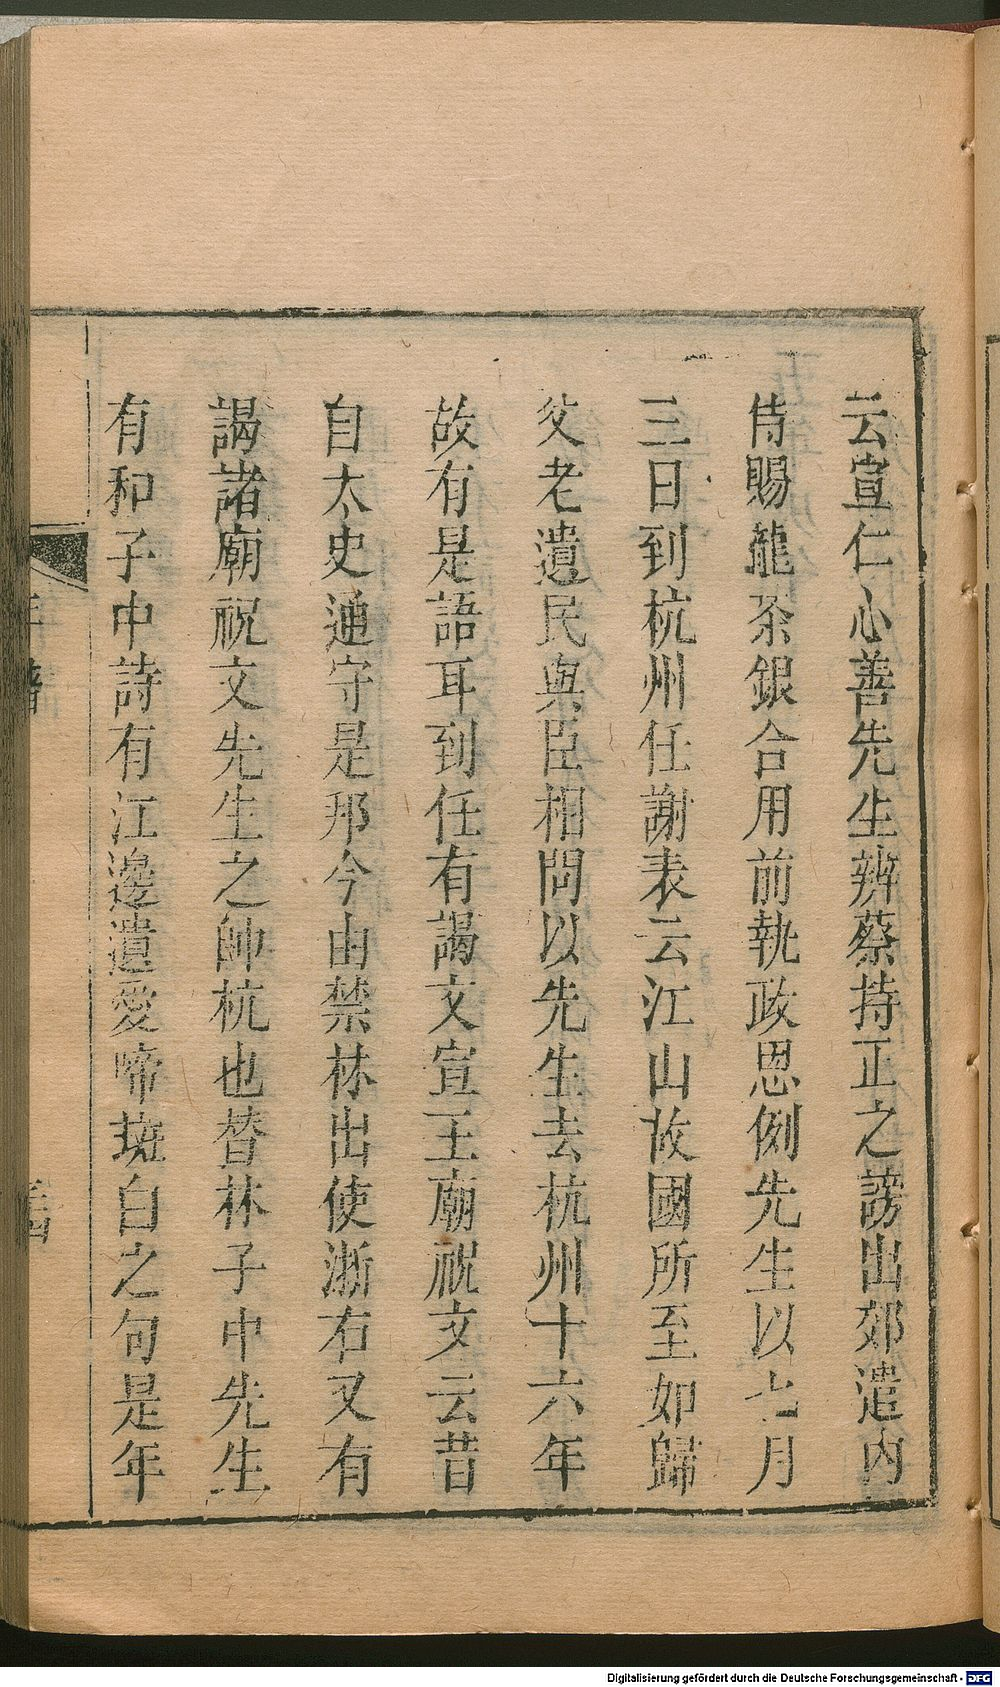 云宣仁心善先生辨蔡持正之謗出郊遣内
侍賜龍茶銀合用前執政恩例先生以七月
三日到杭州任謝表云江山故國所至如歸
父老遺民與臣相問以先生去杭州十六年
故有是語耳到任有謁文宣王廟祝文云昔
自太史通守是邦今由禁林出使浙右又有
謁諸廟祝文先生之帥杭也替林子中先生
有和子中詩有江邊遺愛啼斑白之句是年
年譜
Digitalisierung gefördert durch die Deutsche Forschungsgemeinschaft - DFG